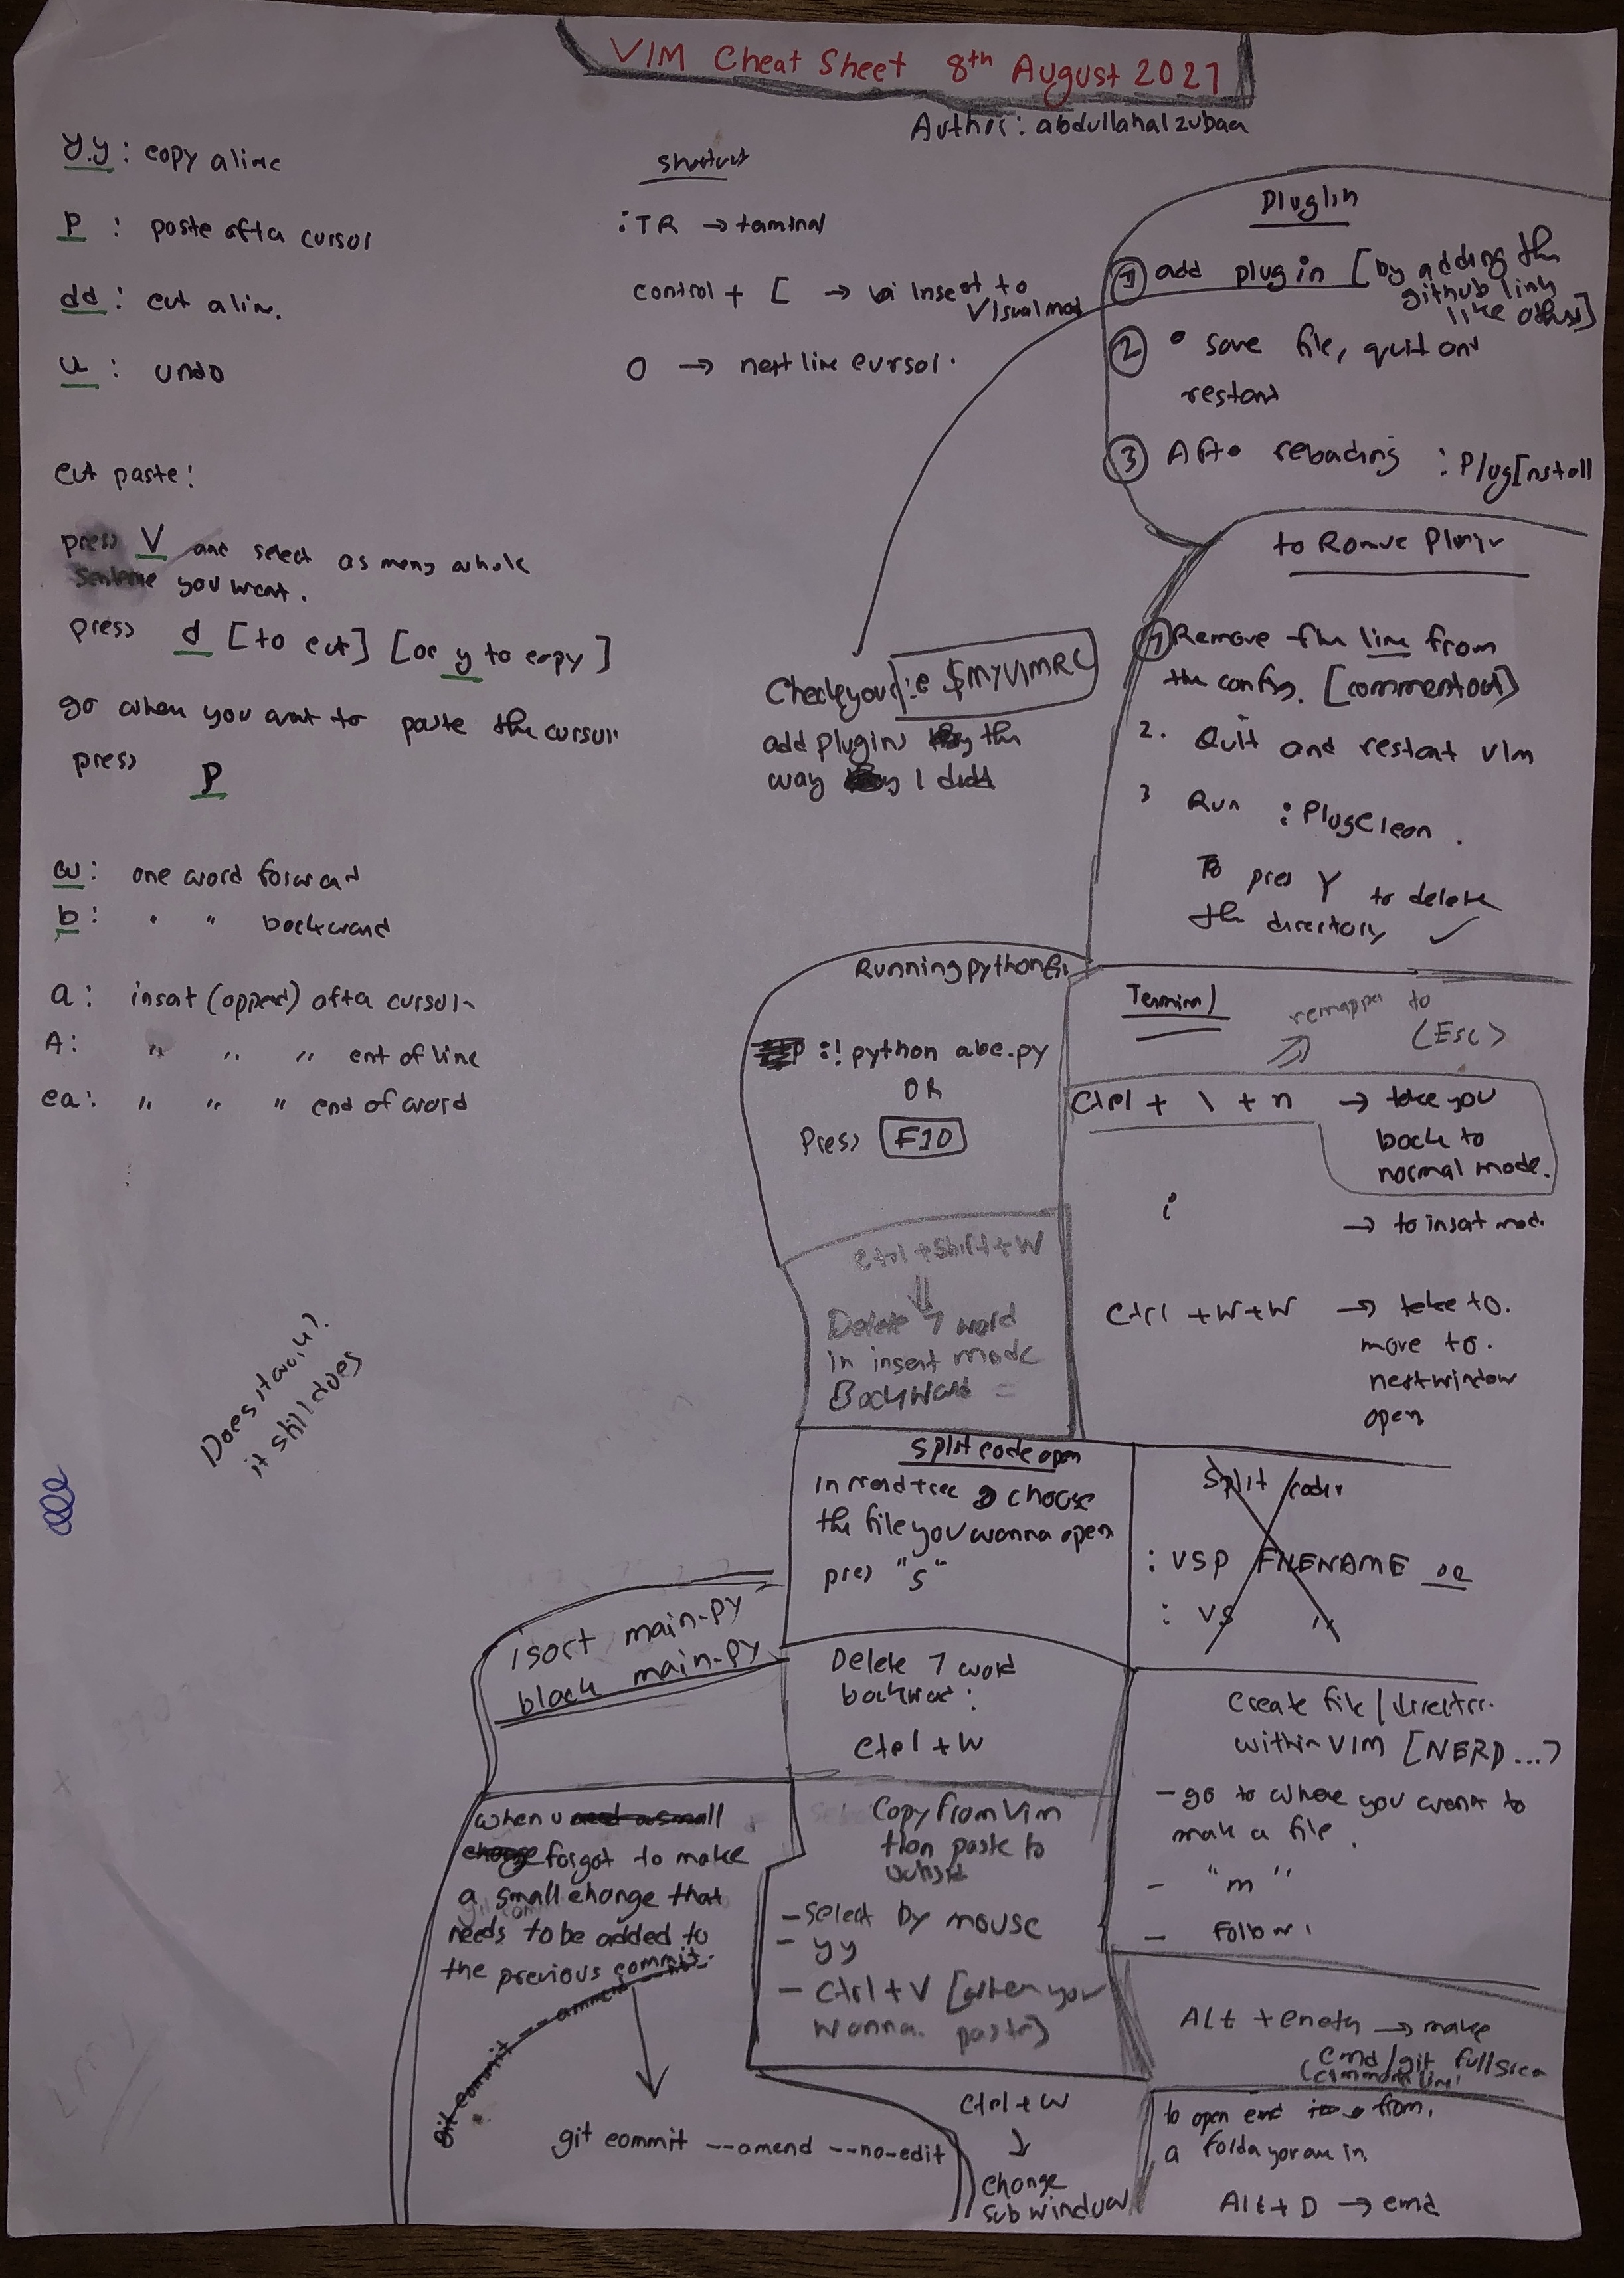 VIM Cheat Sheet 8th August 2021
Author: abdullahalzubaer
yy: copy a line
p : paste after cursor
dd: cut a line.
u : undo
cut paste:
press V and select as many whole
sentence you want.
press d [to cut] [or y to copy]
go when you want to paste the cursor
press p
w: one word forward
b: " " backward
a: insert (append) after cursor
A: " " " ent of line
ea: " " " end of word
Does it work?
it still does
shortcut
:TR → terminal
control + [ → insert to
Visual mod
O → next line cursor.
Check your :e $MYVIMRC
add plugins by the
way I did
Pluglin
① add plugin [by adding the
github link
like others]
② • save file, quit and
restart
③ After reloading :PlugInstall
to Remove Plugin
① Remove the line from
the config. [comment out]
2. Quit and restart vim
3 Run :PlugClean.
To press Y to delete
the directory ✓
Running python file
:! python abc.py
OR
Press F10
Ctrl+Shift+W
⇓
Delete 1 word
in insert mode
Backward
Terminal
remapped to
<Esc>
Ctrl + \ + n → take you
back to
normal mode.
i → to insert mod.
Ctrl +W+W → take to.
move to.
next window
open
Split code open
in nerdtree choose
the file you wanna open
press "s"
Split /code
:VSP FILENAME or
: VS "
isort main.py
black main.py
Delete 1 word
backward:
Ctrl + W
Create file/director.
within VIM [NERD...]
- go to where you want to
make a file.
- "m"
- Follow
when u need a small
change forgot to make
a small change that
needs to be added to
the previous commit.
git commit --amend
git commit --amend --no-edit
Copy from Vim
then paste to
outside
- Select by mouse
- yy
- Ctrl + V [when you
wanna. paste]
Alt + enter → make
cmd/git full screen
(command line)
Ctrl + W
↓
change
sub window
to open cmd from.
a folder you are in.
Alt + D → cmd